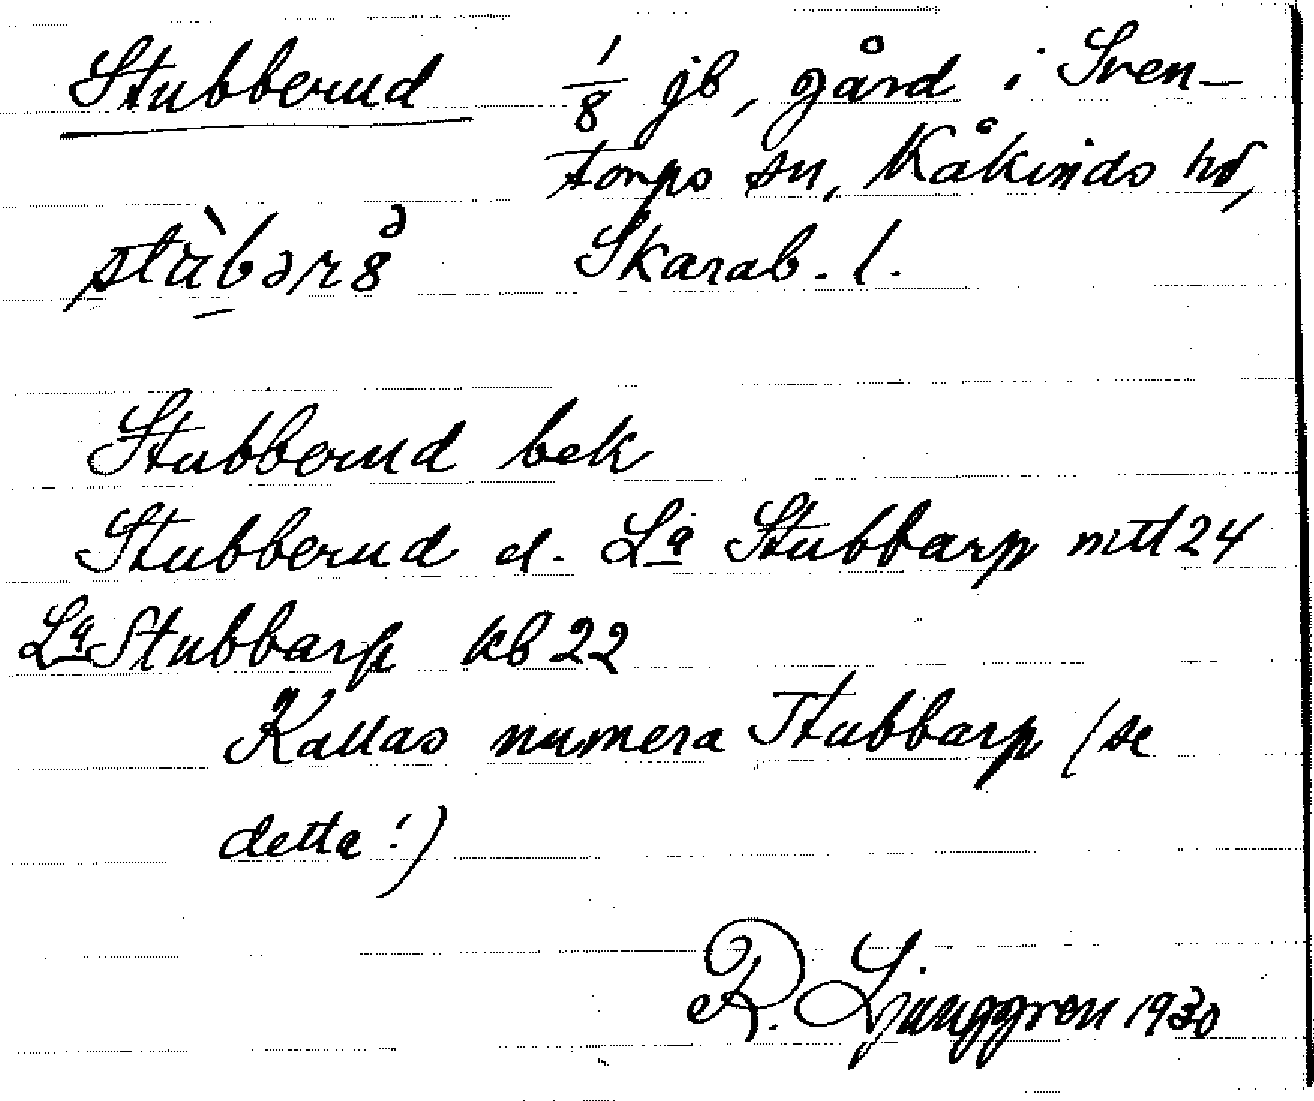 Stubberud 1/8 jb, gård i Sven-
torps sn, Kåkinds hd,
stùbərȣ Skarab. l.
Stubberud bek
Stubberud el. La Stubbarp mtl 24
La Stubbarp kb 22
Kallas numera Stubbarp (se
detta!)
R. Ljunggren 1930